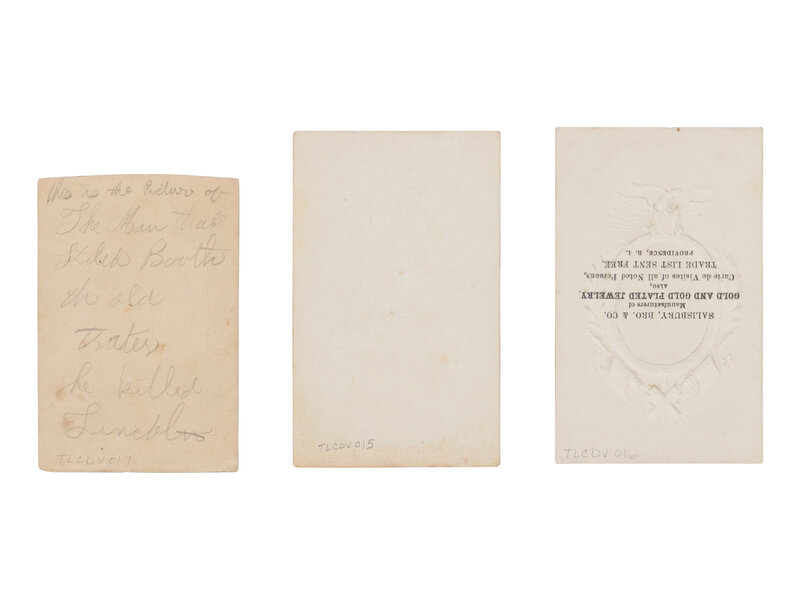 this is the Picture of
The Man that
Kiled Booth
th old
trater
he killed
Lincoln
TLCDV 017
TLCDV 015
SALISBURY, BRO. & CO.
Manufacturers of
GOLD AND GOLD PLATED JEWELRY.
ALSO,
Carte de Visites of all Noted Persons,
TRADE LIST SENT FREE.
PROVIDENCE, R. I.
TLCDV 016